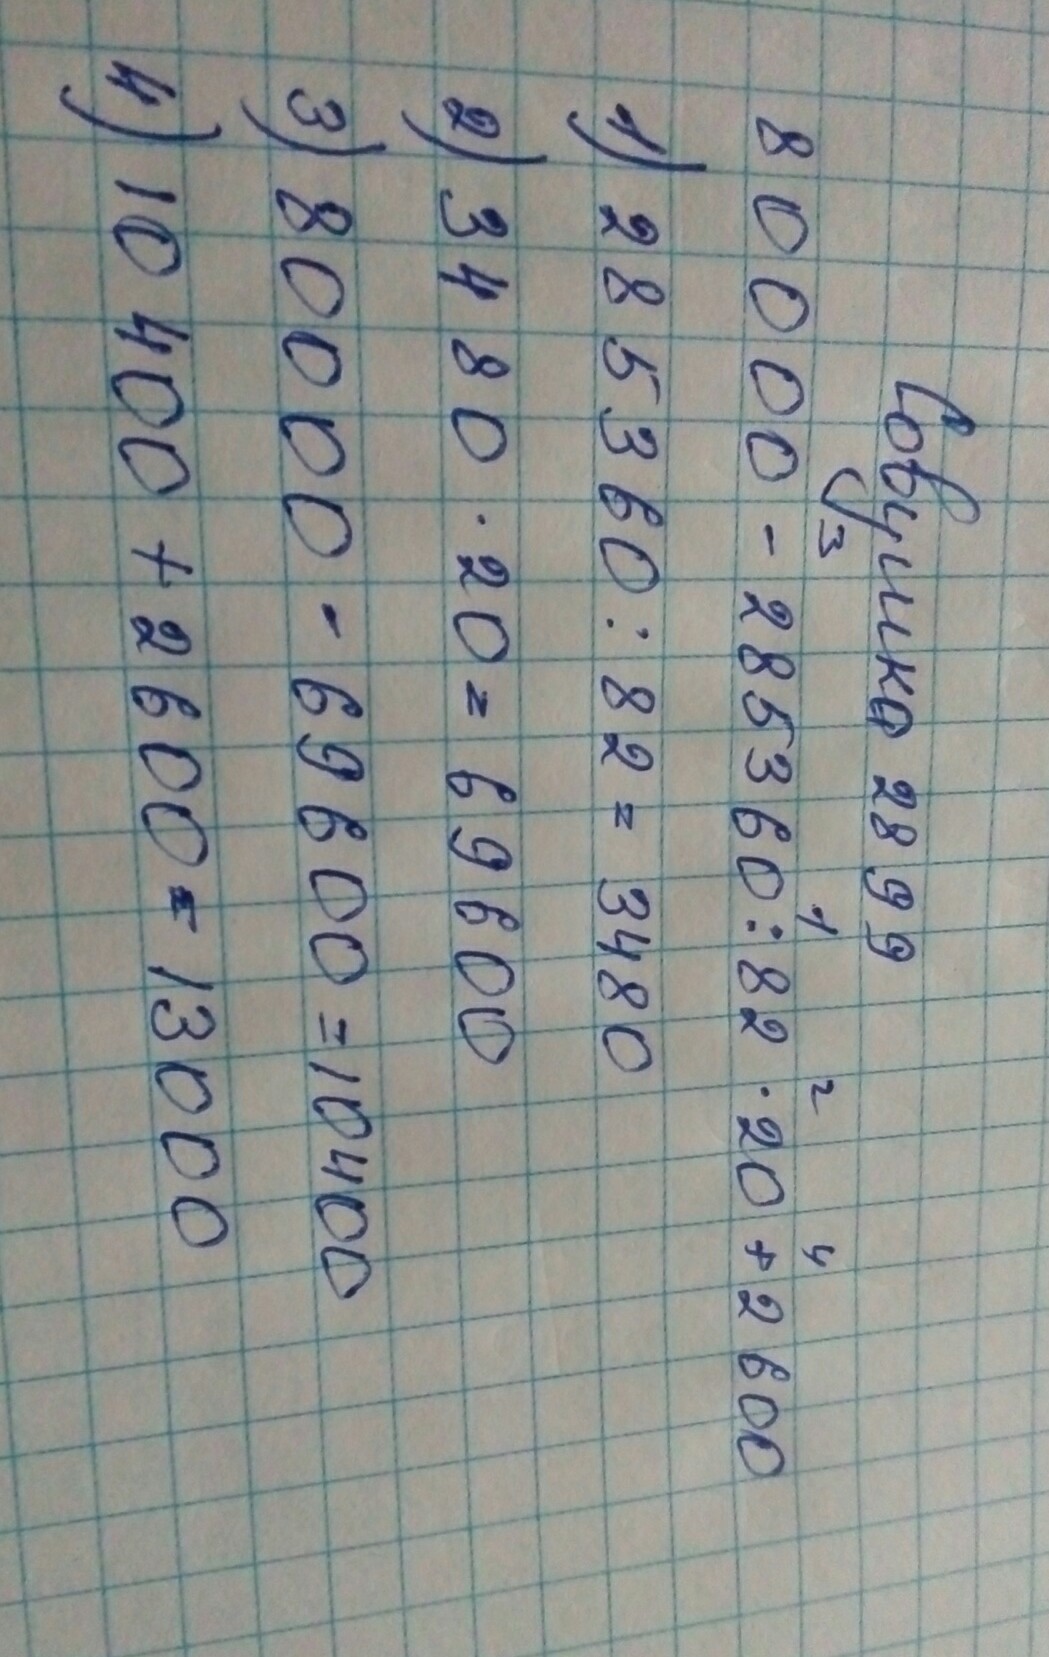 Совушка 2899
3 1 2 4
80000 - 285360 : 82 · 20 + 2600
1) 285360 : 82 = 3480
2) 3480 · 20 = 69600
3) 80000 - 69600 = 10400
4) 10400 + 2600 = 13000